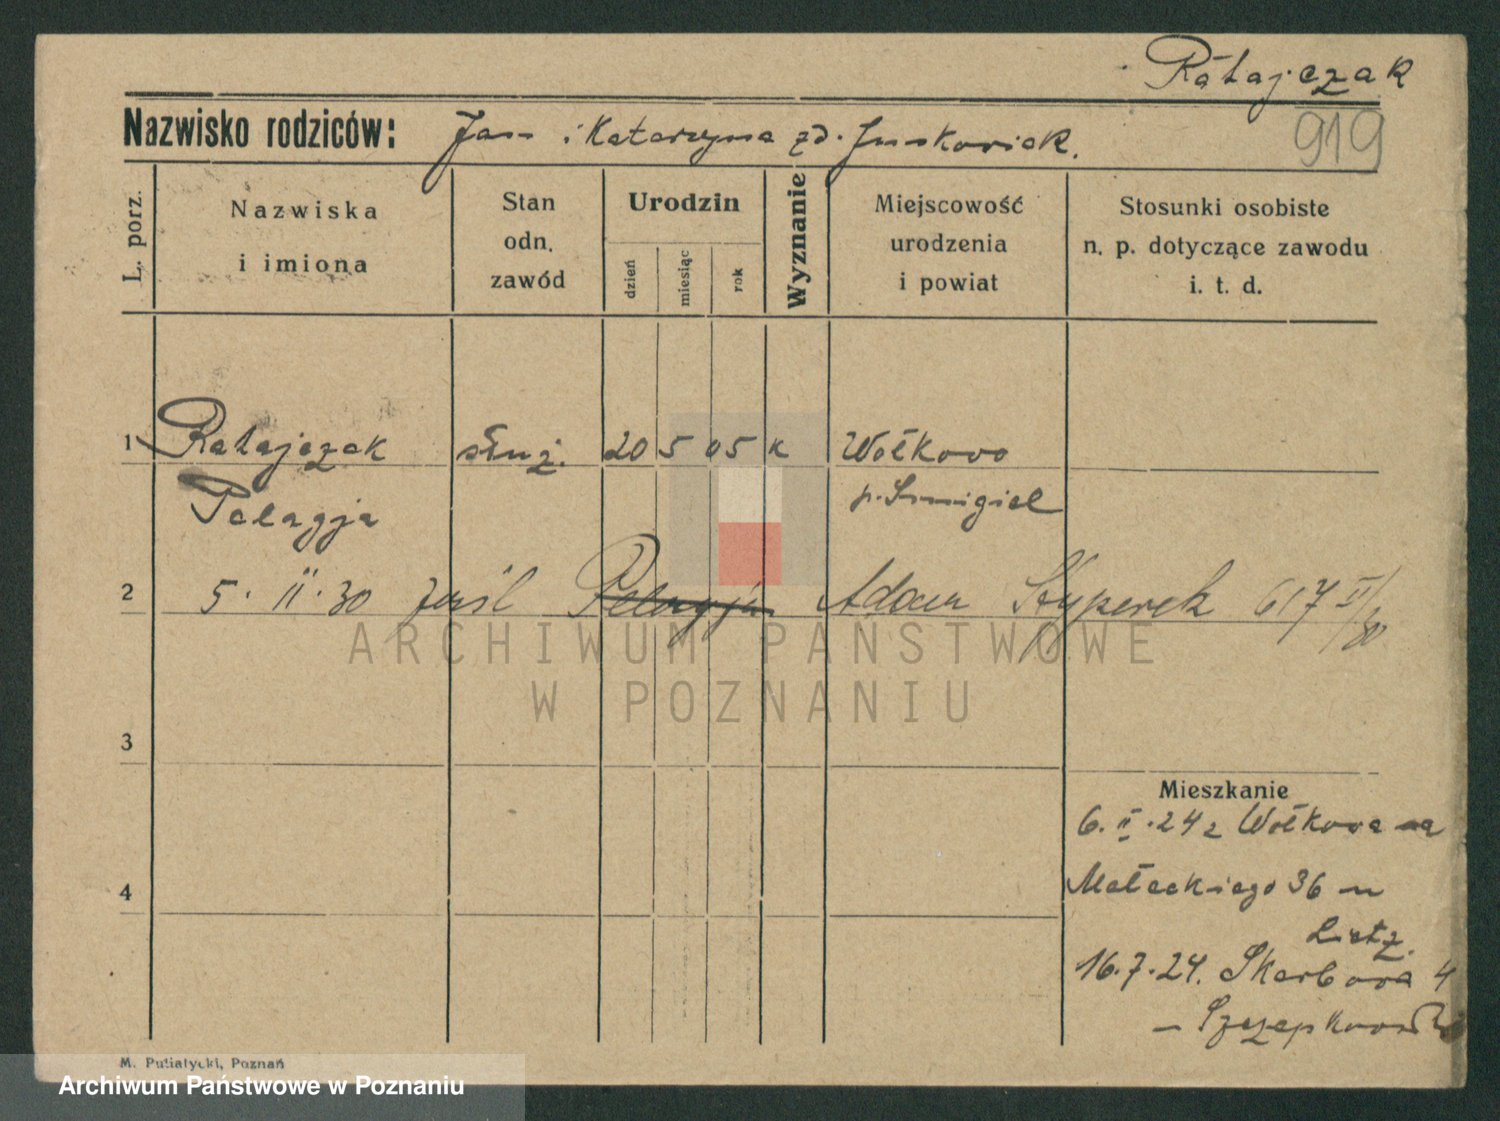 Ratajczak
919
Nazwisko rodziców: Jan i Katarzyna zd. Juskowiak.
L. porz.
Nazwiska
i imiona
Stan
odn.
zawód
Urodzin
dzień
miesiąc
rok
Wyznanie
Miejscowość
urodzenia
i powiat
Stosunki osobiste
n. p. dotyczące zawodu
i. t. d.
1 Ratajczak służ. 20 5 05 k Wółkowo
Pelagja p. Śmigiel
2 5. II. 30 Pelagja Adam 617 II/30
ARCHIWUM PAŃSTWOWE
W POZNANIU
3
Mieszkanie
6. II. 24 z Wółkowa na
4 Małeckiego 36
16.7.24. Skarbowa 4
M. Putiatycki, Poznań
Archiwum Państwowe w Poznaniu